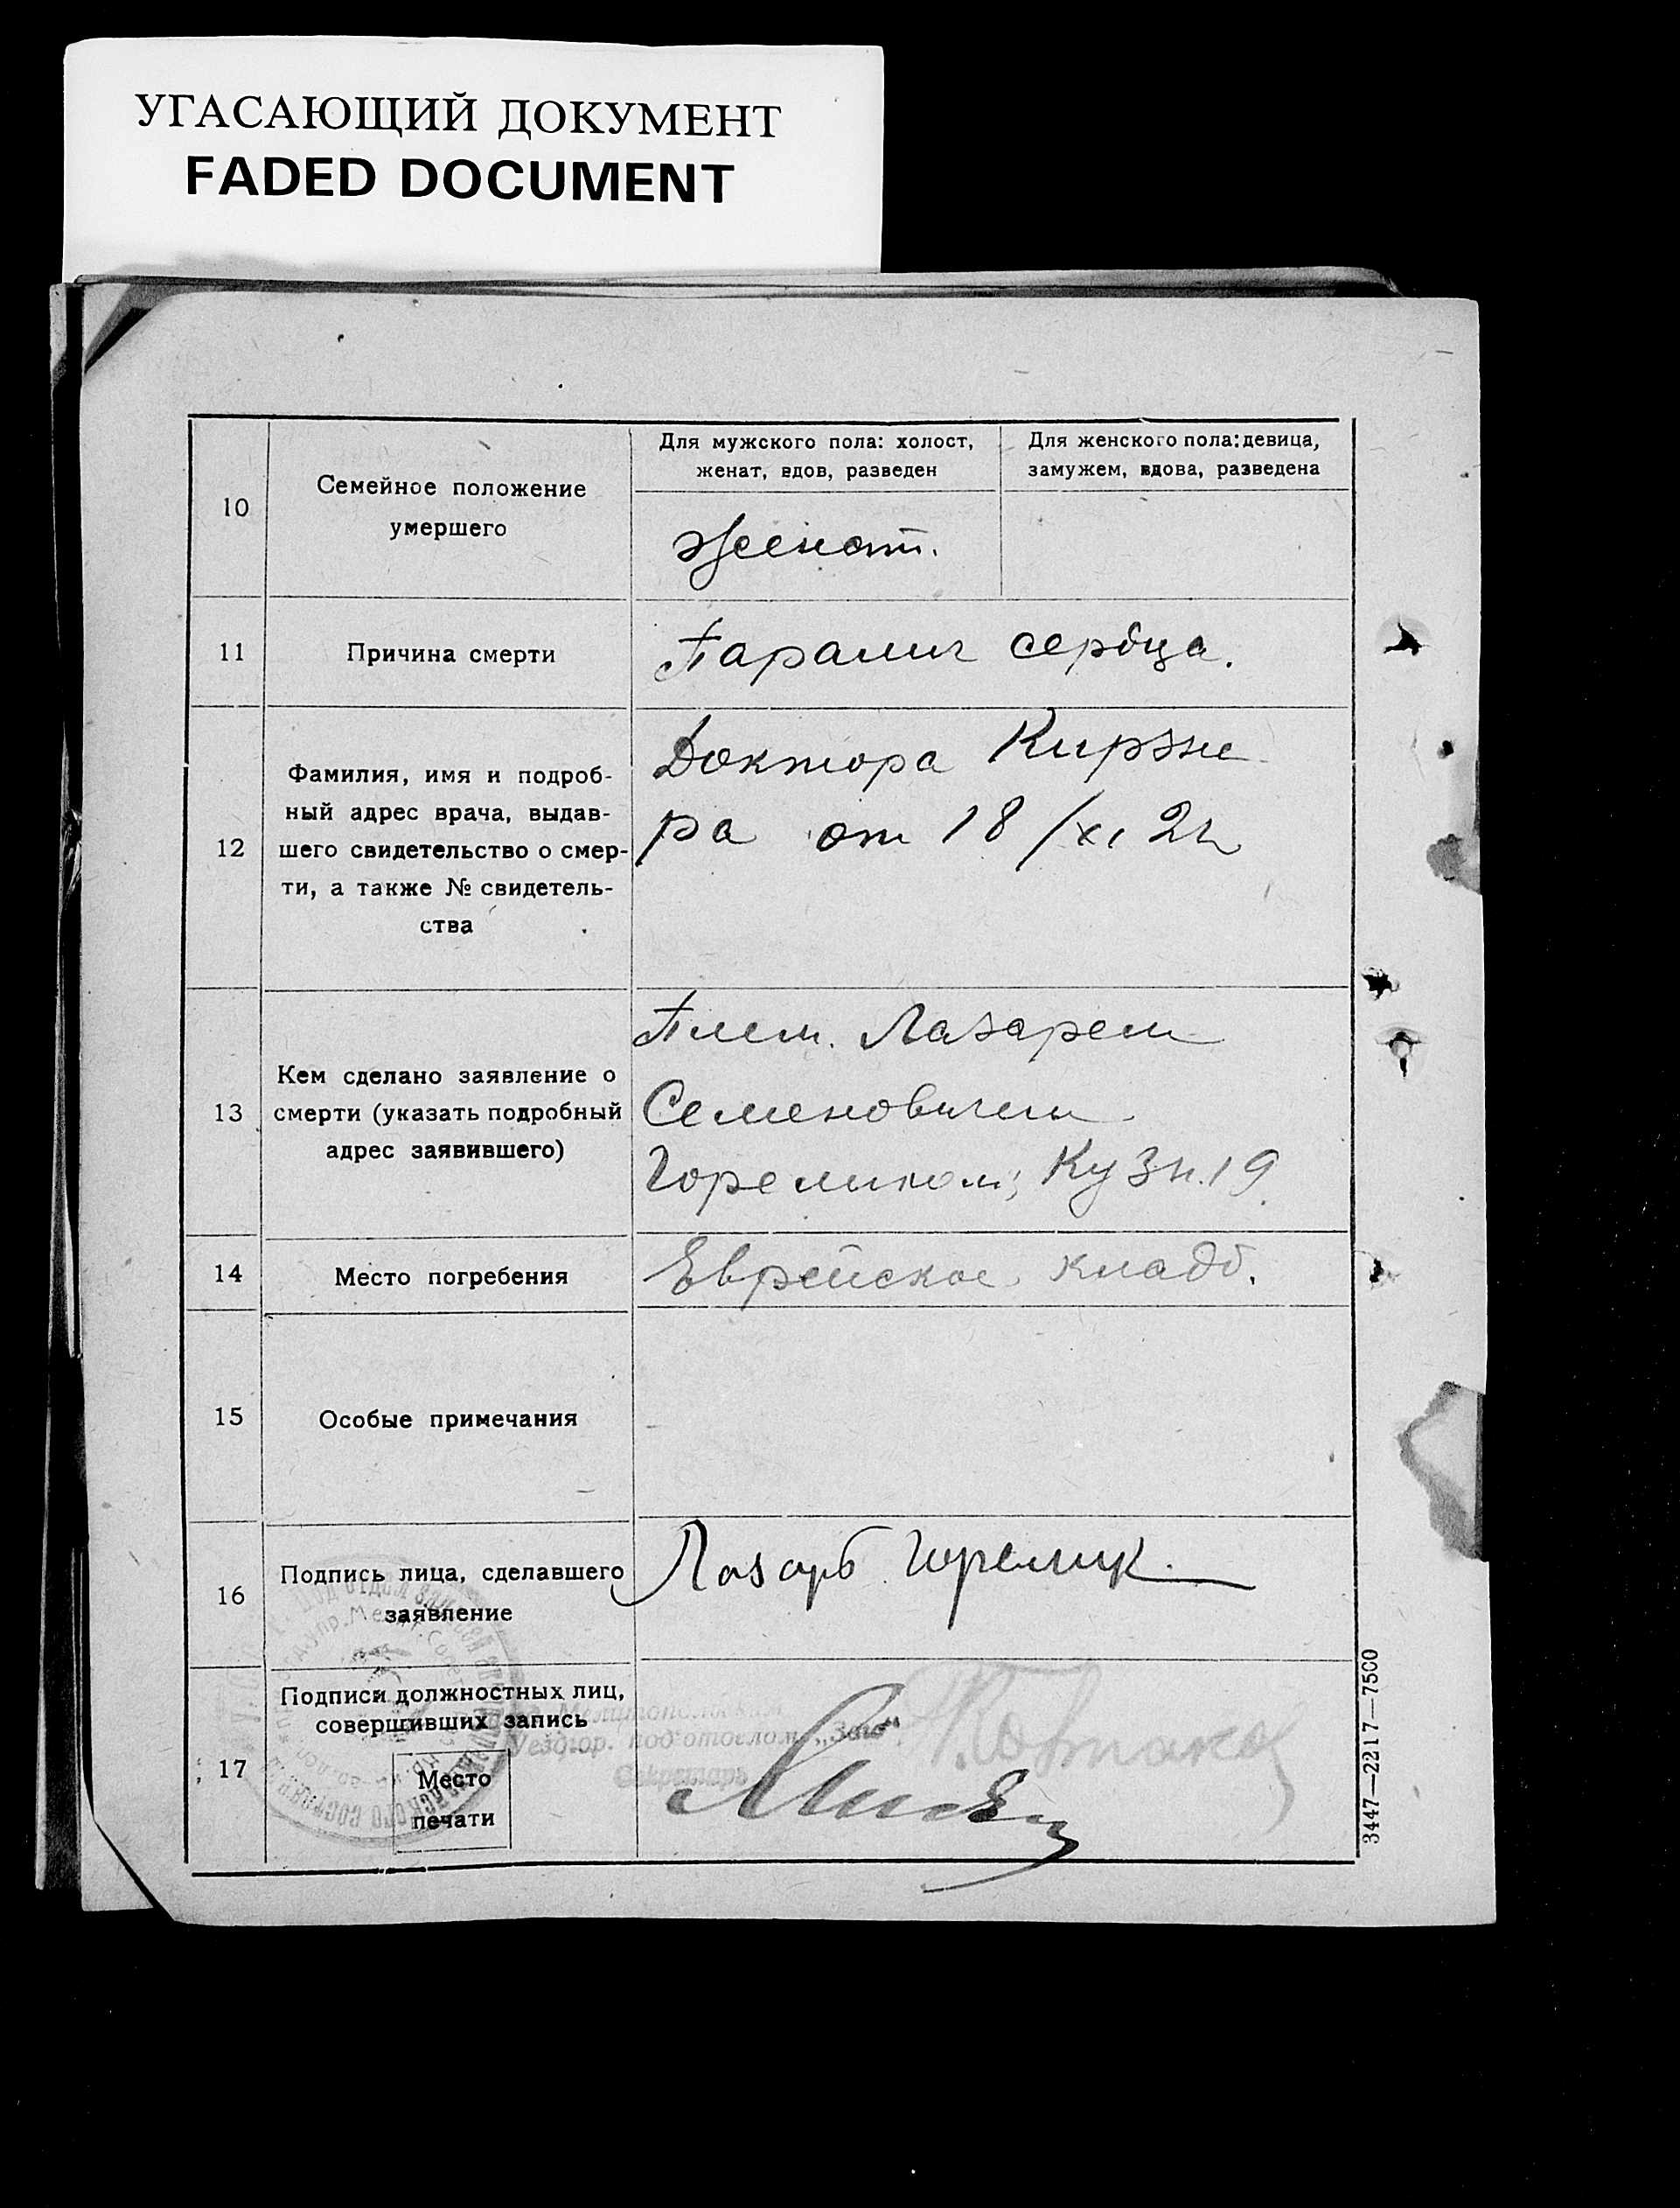 УГАСАЮЩИЙ ДОКУМЕНТ
FADED DOCUMENT
10
Семейное положение
умершего
Для мужского пола: холост,
женат, вдов, разведен
Для женского пола: девица,
замужем, вдова, разведена
женат.
11
Причина смерти
Паралич сердца.
12
Фамилия, имя и подроб-
ный адрес врача, выдав-
шего свидетельство о смер-
ти, а также № свидетель-
ства
Доктора Кирзне
ра от 18/XI 2
13
Кем сделано заявление о
смерти (указать подробный
адрес заявившего)
Плем. Лазарем
Семеновичем
Гореликом; Кузн. 19
14
Место погребения
Еврейское кладб.
15
Особые примечания
16
Подпись лица, сделавшего
заявление
Лазарь Горелик
17
Подписи должностных лиц,
совершивших запись
Место
печати
Уездгор. подотделом „Загс“
Секретарь
3447—2217—7500